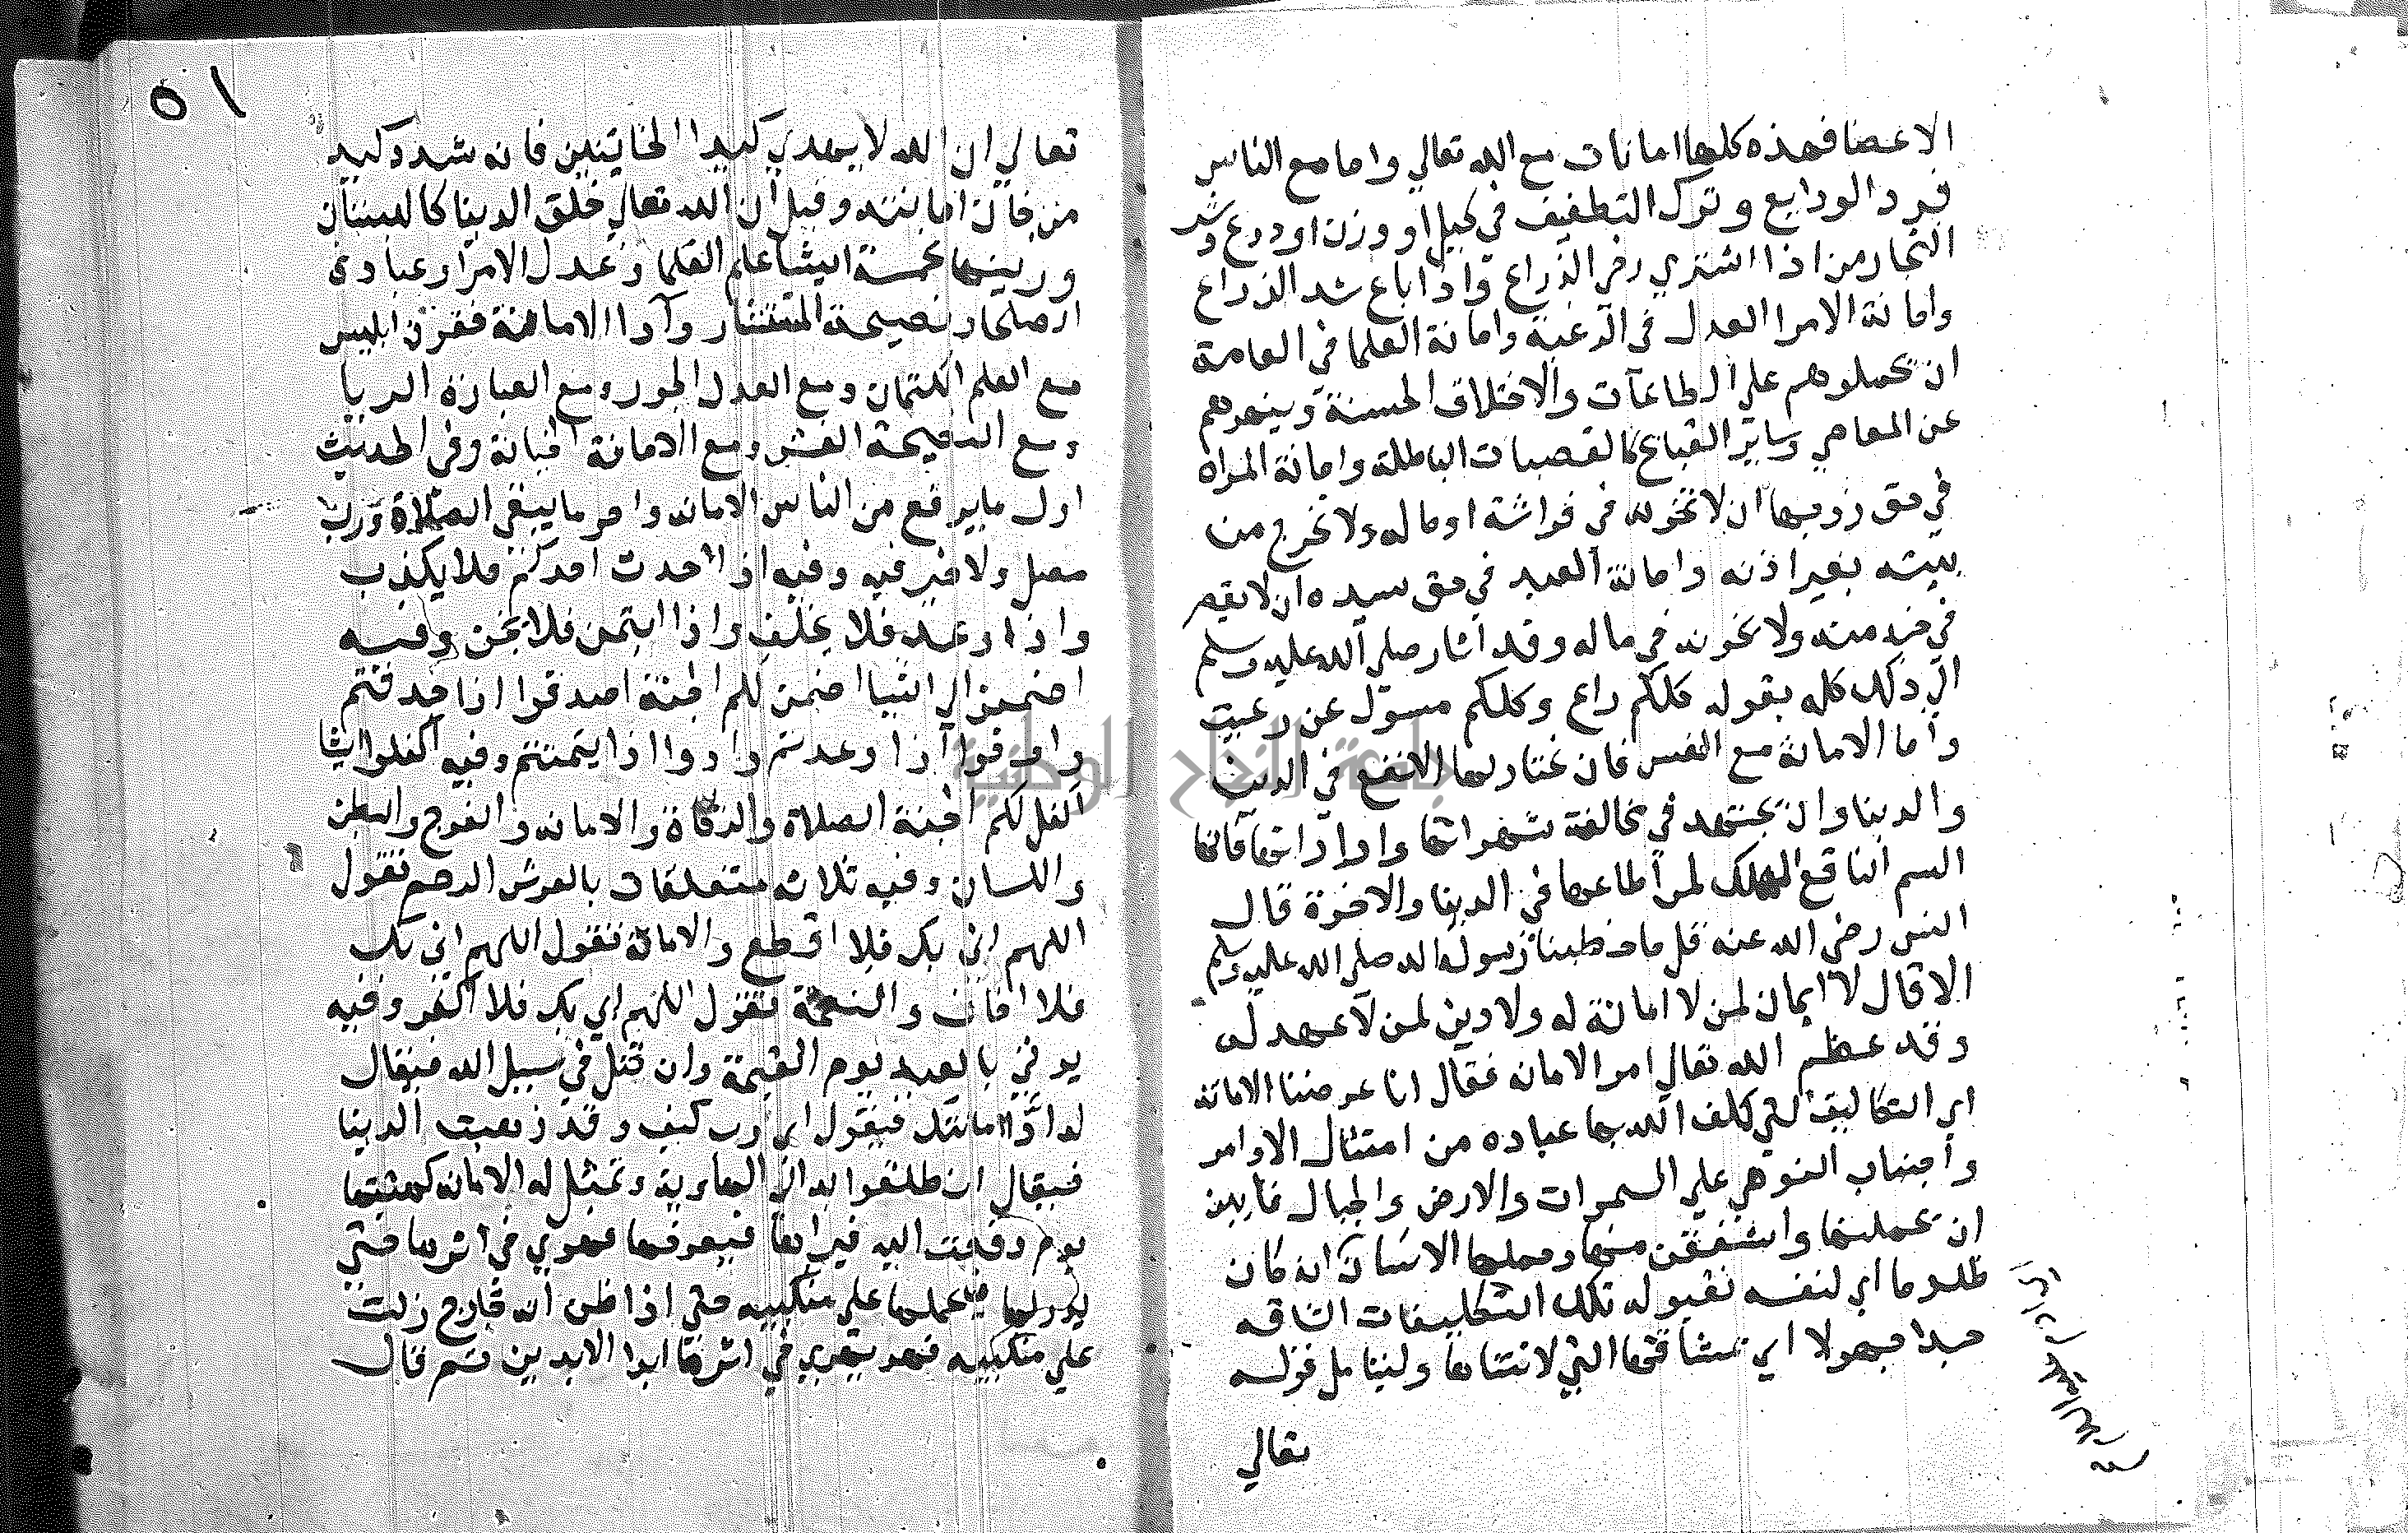 الاعضا فهذه كلها امانات مع الله تعالي واما مع الناس
فرد الودايع وترك التطفيف في كيل او وزن او ذرع وشر
التجار من اذا اشتري رخي الذراع واذا باع شد الذراع
وامانة الامرا العدل في الرعية وامانة العلما في العامة
ان يحملوهم علي الطاعات والاخلاق الحسنة وينهوهم
عن المعاصي وساير القبايح كالتعصبات الباطلة وامانة المراه
في حق زوجها ان لا تخونه في فراشه او ماله ولا تخرج من
بيته بغير اذنه وامانة العبد في حق سيده ان لا يقصر
في خدمته ولا يخونه في ماله وقد اشار صلي الله عليه وسلم
الي ذلك كله بقوله كلكم راع وكلكم مسول عن رعيته
واما الامانة مع النفس فان يختار لها الانفع في الدين
والدنيا وان يجتهد في مخالفة شهواتها واراداتها فانها
السم الناقع المهلك لمن اطاعها في الدنيا والاخرة قال
انس رضي الله عنه قل ما خطبنا رسول الله صلي الله عليه وسلم
الا قال لا ايمان لمن لا امانة له ولا دين لمن لا عهد له
وقد عظم الله تعالي امر الامانه فقال انا عرضنا الامانه
اي التكاليف التي كلف الله بها عباده من امتثال الاوامر
واجتناب النواهي علي السموات والارض والجبال فابين
ان يحملنها واشفقن منها وحملها الانسان انه كان
ظلوما اي لنفسه بقبوله تلك التكليفات الشاقه
جدا جهولا اي بمشاقها التي لا تتناها وليتامل قوله
تعالي
٥١
تعالي ان الله لا يهدي كيد الخاينين فانه شدد كيد
من خان امانته وقيل ان الله تعالي خلق الدنيا كالبستان
وزينها بخمسة اشيا علم العلما وعدل الامرا وعبادة
الصلحا ونصيحة المستشار وادا الامانة فقرن ابليس
مع العلم الكتمان ومع العدل الجور ومع العبادة الريا
ومع النصيحة الغش ومع الامانة الخيانة وفي الحديث
اول ما يرفع من الناس الامانه واخر ما يبقي الصلاة ورب
مصل ولا خير فيه وفيه اذا حدث احدكم فلا يكذب
واذا وعد فلا يخلف واذا ايتمن فلا يخن وفيه
اضمنوا لي اشيا اضمن لكم الجنة اصدقوا اذا حدثتم
واوفوا اذا وعدتم وادوا اذا ايتمنتم وفيه اكفلوا لي اشيا
اكفل لكم الجنة الصلاة والزكاة والامانه والفرج والبطن
واللسان وفيه ثلاث متعلقات بالعرش الرحم تقول
اللهم اني بك فلا اقطع والامانة تقول اللهم اني بك
فلا اخان والنعمة تقول اللهم اني بك فلا اكفر وفيه
يوتي بالعبد يوم القيمة وان قتل في سبيل الله فيقال
له اد امانتك فيقول اي رب كيف وقد ذهبت الدنيا
فيقال انطلقوا به الي الهاوية وتمثل له الامانه كهيئتها
يوم دفعت اليه فيراها فيعرفها فيهوي في اثرها حتي
يدركها فيحملها علي منكبيه حتي اذا ظن انه خارج زلت
علي منكبيه فهو يهوي في اثرها ابد الابدين ثم قال
جامعة النجاح الوطنية